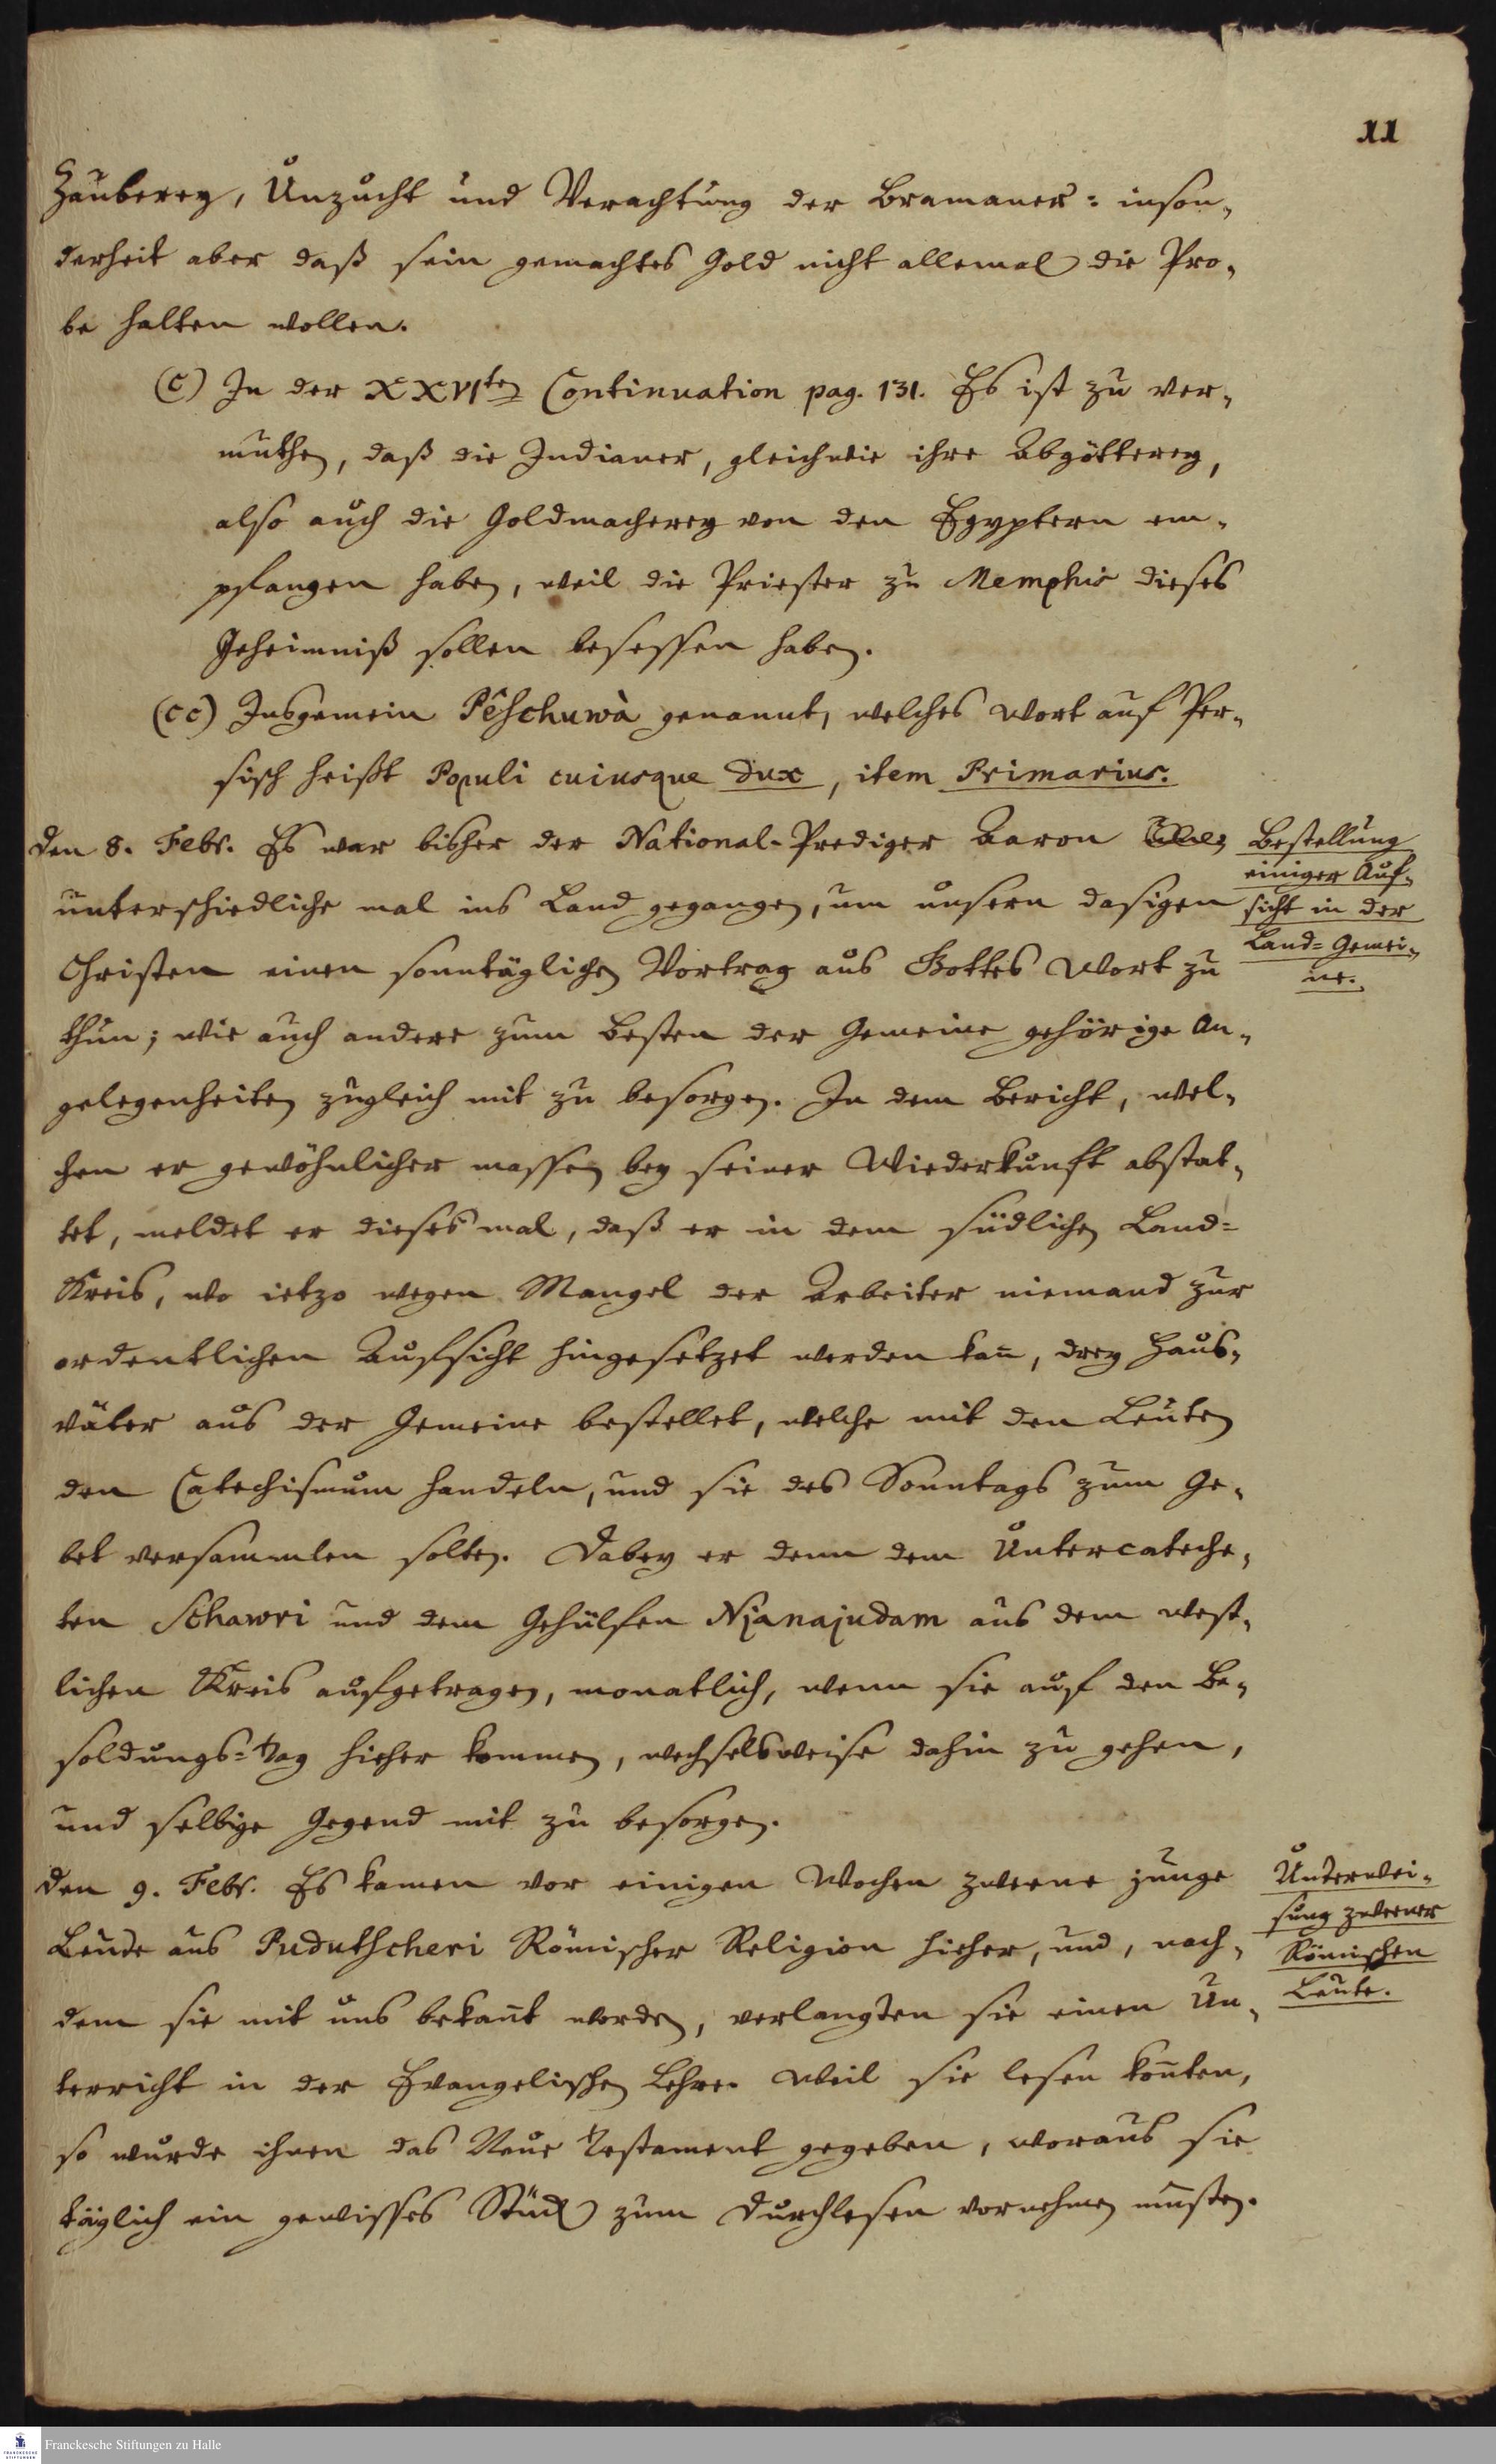 11
Zauberey, Unzucht und Verachtung der Bramaner: inson-
derheit aber daß sein gemachtes Gold nicht allemal die Pro-
be halten wollen.
(c) In der XXVIten Continuation pag. 131. Es ist zu ver-
muthen, daß die Indianer, gleichwie ihre Abgötterey,
also auch die Goldmacherey von den Egyptern em-
pfangen haben, weil die Priester zu Memphis dieses
Geheimniß sollen besessen haben.
(cc) Insgemein Pêschuwà genannt, welches Wort auf Per-
sisch heißt Populi cuiusque Dux, item Primarius.
Den 8. Febr. Es war bisher der National-Prediger Aaron
unterschiedliche mal ins Land gegangen, um unsern dasigen
Christen einen sonntäglichen Vortrag aus Gottes Wort zu
thun; wie auch andere zum Besten der Gemeine gehörige An-
gelegenheiten zugleich mit zu besorgen. In dem Bericht, wel-
chen er gewöhnlicher massen bey seiner Wiederkunft abstat-
tet, meldet er dieses mal, daß er in dem südlichen Land=
Kreis, wo ietzo wegen Mangel der Arbeiter niemand zur
ordentlichen Aufsicht hingesetzet werden kan̄, drey Haus-
väter aus der Gemeine bestellet, welche mit den Leuten
den Catechismum handeln, und sie des Sonntags zum Ge-
bet versammlen solten. Dabey er denn dem Untercateche-
ten Schawri und dem Gehülfen Njanajudam aus dem west-
lichen Kreis aufgetragen, monatlich, wenn sie auf den Be-
soldungs=Tag hieher kommen, wechselsweise dahin zu gehen,
und selbige Gegend mit zu besorgen.
Bestellung
einiger Auf-
sicht in der
Land=Gemei-
ne.
Den 9. Febr. Es kamen vor einigen Wochen zweene junge
Leute aus Pudutscheri Römischer Religion hieher, und, nach-
dem sie mit uns bekan̄t worden, verlangten sie einen Un-
terricht in der Evangelischen Lehre. Weil sie lesen kon̄ten,
so wurde ihnen das Neue Testament gegeben, woraus sie
täglich ein gewisses Stück zum Durchlesen vornehmen musten.
Unterwei-
sung zweener
Römischen
Leute.
Franckesche Stiftungen zu Halle